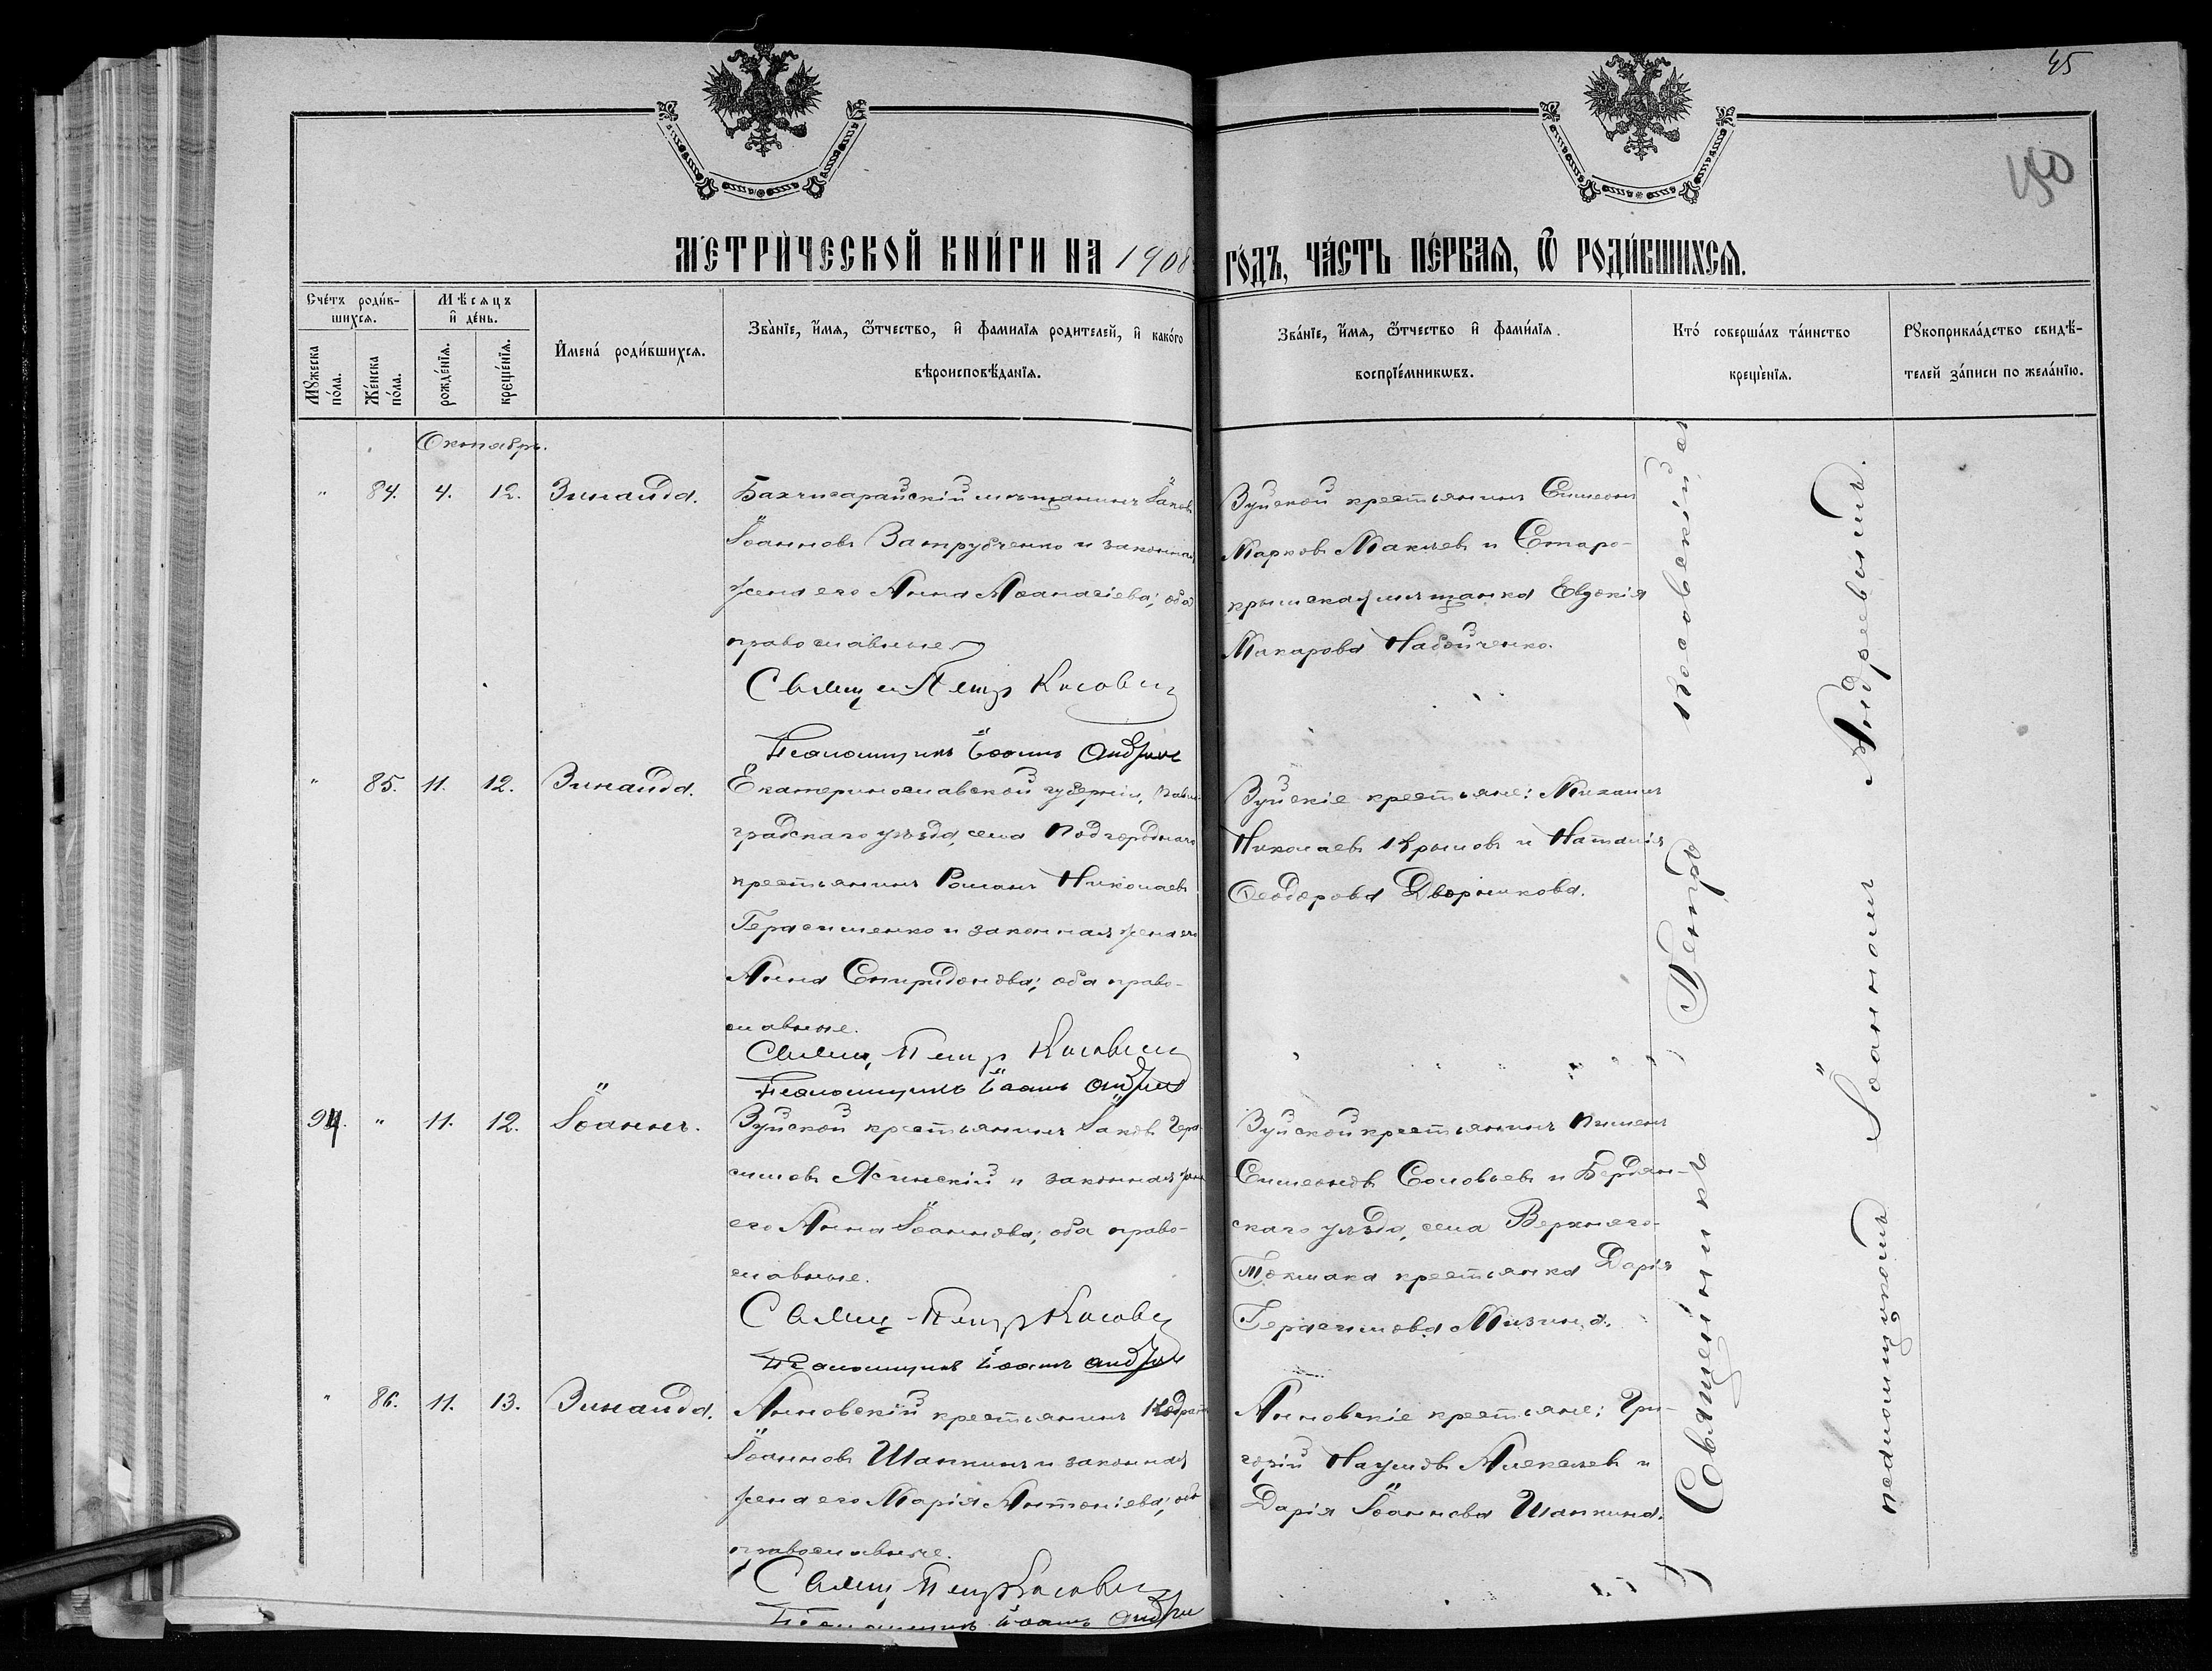 45
150
МЕТРИ́ЧЕСКОЙ КНИ́ГИ НА 1908 ГО́ДЪ, ЧА́СТЬ ПЕ́РВАЯ, Ѿ РОДИ́ВШИХСѦ.
Сче́тъ роди́в-
шихсѧ.
Мꙋ́жеска по́ла.
Же́нска по́ла.
Мѣ́сѧцъ и҆ де́нь.
рожде́нїѧ.
креще́нїѧ.
И҆мена́ роди́вшихсѧ.
Зва́нїе, и҆́мѧ, ѻ҆́тчество, и҆ фамилїѧ родителей, и҆ како́гѡ
вѣроисповѣ́данїѧ.
Зва́нїе, и҆́мѧ, ѻ҆́тчество и҆ фами́лїѧ.
воспрїе́мникѡвъ.
Кто́ соверша́лъ та́инство
креще́нїѧ.
Рꙋкоприкла́дство свидѣ́-
телей за́писи по жела́нїю.
Октябрь.
" 84. 4. 12. Зинаида.
Бахчисарайскій мѣщанинъ Іаковъ
Іоанновъ Затрубченко и законная
жена его Анна Аѳанасіева; оба
православные
Свящ Петр Косовскі
Псаломщикъ Іоаннъ Андрие
Зуйской крестьянинъ Симеонъ
Марковъ Макѣевъ и Старо-
крымская мѣщанка Евдокія
Макарова Набойченко.
" 85. 11. 12. Зинаида.
Екатеринославской губерніи, Павло
градскаго уѣзда, села Подгороднаго
крестьянинъ Романъ Николаевъ
Герасименко и законная жена его
Анна Спиридонова; оба право-
славные.
Свящ Петр Косовскі
Псаломщикъ Іоаннъ Андрие
Зуйскіе крестьяне: Михаилъ
Николаевъ Крыловъ и Наталія
Ѳеодорова Дворникова.
94. " 11. 12. Іоаннъ.
Зуйской крестьянинъ Іаковъ Гера
симовъ Ясинскій и законная жена
его Анна Іоаннова; оба право-
славные.
Свящ Петр Косовскі
Псаломщикъ Іоаннъ Андрие
Зуйской крестьянинъ Пименъ
Симеоновъ Соловьевъ и Бердян-
скаго уѣзда, села Верхняго-
Токмака крестьянка Дарія
Герасимова Мизина.
" 86. 11. 13. Зинаида.
Анновскій крестьянинъ Кодратъ
Іоанновъ Шапкинъ и законная
жена его Марія Антоніева; оба
православные.
Свящ Петр Косовскі
Псаломщикъ Іоаннъ Андрие
Анновскіе крестьяне: Гри-
горій Наумовъ Алексѣевъ и
Дарія Іоаннова Шапкина.
Священникъ Петръ Косовскій съ
псаломщикомъ Іоанномъ Андреевымъ.